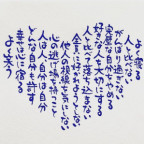 よく寝る
がんばり過ぎない
人と比べない
完璧な自分をやめる
好きな人を大切にする
人と比べて落ち込まない
全員に好かれようとしない
他人の機嫌を気にしない
心の逃げ場を持つこと
人は人自分は自分
どんな自分も許す
幸せは心に宿る
よく笑う